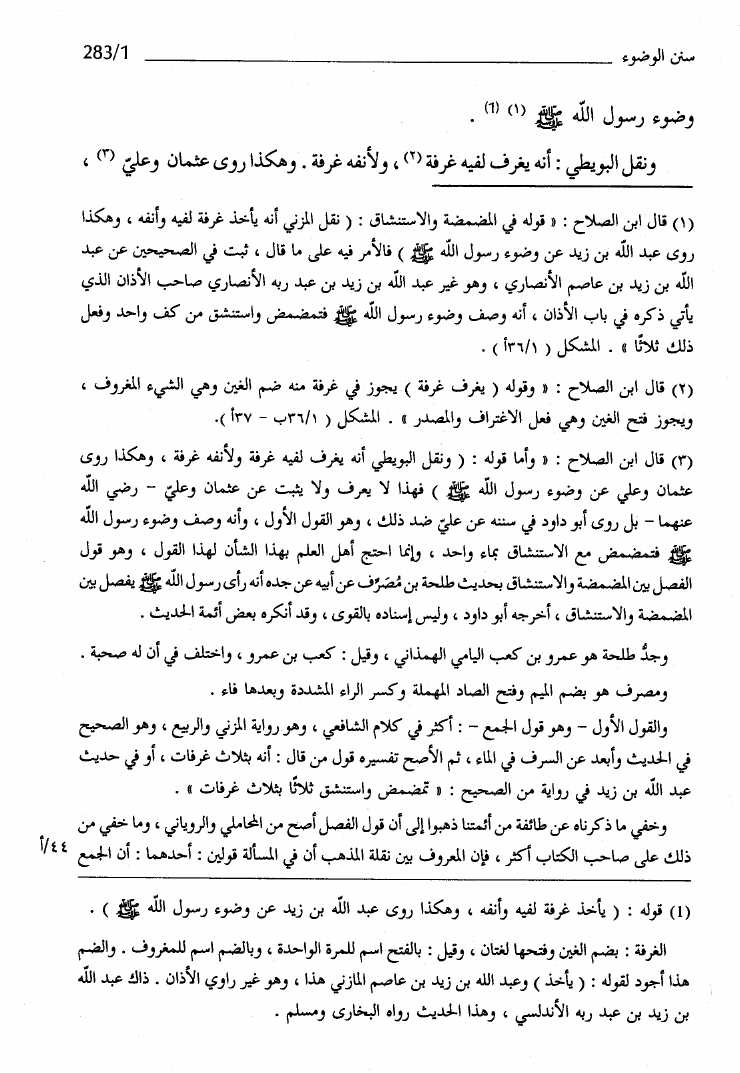 سنن الوضوء 283/1
وضوء رسول الله ﷺ (١) (1) .
ونقل البويطي : أنه يغرف لفيه غرفة (٢) ، ولأنفه غرفة . وهكذا روى عثمان وعليّ (٣) ،
(١) قال ابن الصلاح : « قوله في المضمضة والاستنشاق : ( نقل المزني أنه يأخذ غرفة لفيه وأنفه ، وهكذا
روى عبد الله بن زيد عن وضوء رسول الله ﷺ ) فالأمر فيه على ما قال ، ثبت في الصحيحين عن عبد
الله بن زيد بن عاصم الأنصاري ، وهو غير عبد الله بن زيد بن عبد ربه الأنصاري صاحب الأذان الذي
يأتي ذكره في باب الأذان ، أنه وصف وضوء رسول الله ﷺ فتمضمض واستنشق من كف واحد وفعل
ذلك ثلاثًا » . المشكل ( ٣٦/١أ ) .
(٢) قال ابن الصلاح : « وقوله ( يغرف غرفة ) يجوز في غرفة منه ضم الغين وهي الشيء المغروف ،
ويجوز فتح الغين وهي فعل الاغتراف والمصدر » . المشكل ( ٣٦/١ب - ٣٧أ ).
(٣) قال ابن الصلاح : « وأما قوله : ( ونقل البويطي أنه يغرف لفيه غرفة ولأنفه غرفة ، وهكذا روى
عثمان وعلي عن وضوء رسول الله ﷺ ) فهذا لا يعرف ولا يثبت عن عثمان وعليّ - رضي الله
عنهما - بل روى أبو داود في سننه عن عليّ ضد ذلك ، وهو القول الأول ، وأنه وصف وضوء رسول الله
ﷺ فتمضمض مع الاستنشاق بماء واحد ، وإنما احتج أهل العلم بهذا الشأن لهذا القول ، وهو قول
الفصل بين المضمضة والاستنشاق بحديث طلحة بن مُصَرِّف عن أبيه عن جده أنه رأى رسول الله ﷺ يفصل بين
المضمضة والاستنشاق ، أخرجه أبو داود ، وليس إسناده بالقوى ، وقد أنكره بعض أئمة الحديث .
وجدُّ طلحة هو عمرو بن كعب اليامي الهمذاني ، وقيل : كعب بن عمرو ، واختلف في أن له صحبة .
ومصرف هو بضم الميم وفتح الصاد المهملة وكسر الراء المشددة وبعدها فاء .
والقول الأول - وهو قول الجمع - : أكثر في كلام الشافعي ، وهو رواية المزني والربيع ، وهو الصحيح
في الحديث وأبعد عن السرف في الماء ، ثم الأصح تفسيره قول من قال : أنه بثلاث غرفات ، أو في حديث
عبد الله بن زيد في رواية من الصحيح : « تمضمض واستنشق ثلاثًا بثلاث غرفات » .
وخفي ما ذكرناه عن طائفة من أئمتنا ذهبوا إلى أن قول الفصل أصح من المحاملي والروياني ، وما خفي من
ذلك على صاحب الكتاب أكثر ، فإن المعروف بين نقلة المذهب أن في المسألة قولين : أحدهما : أن الجمع ٤٤/أ
(1) قوله : ( يأخذ غرفة لفيه وأنفه ، وهكذا روى عبد الله بن زيد عن وضوء رسول الله ﷺ ) .
الغرفة : بضم الغين وفتحها لغتان ، وقيل : بالفتح اسم للمرة الواحدة ، وبالضم اسم للمغروف . والضم
هذا أجود لقوله : ( يأخذ ) وعبد الله بن زيد بن عاصم المازني هذا ، وهو غير راوي الأذان . ذاك عبد الله
بن زيد بن عبد ربه الأندلسي ، وهذا الحديث رواه البخارى ومسلم .